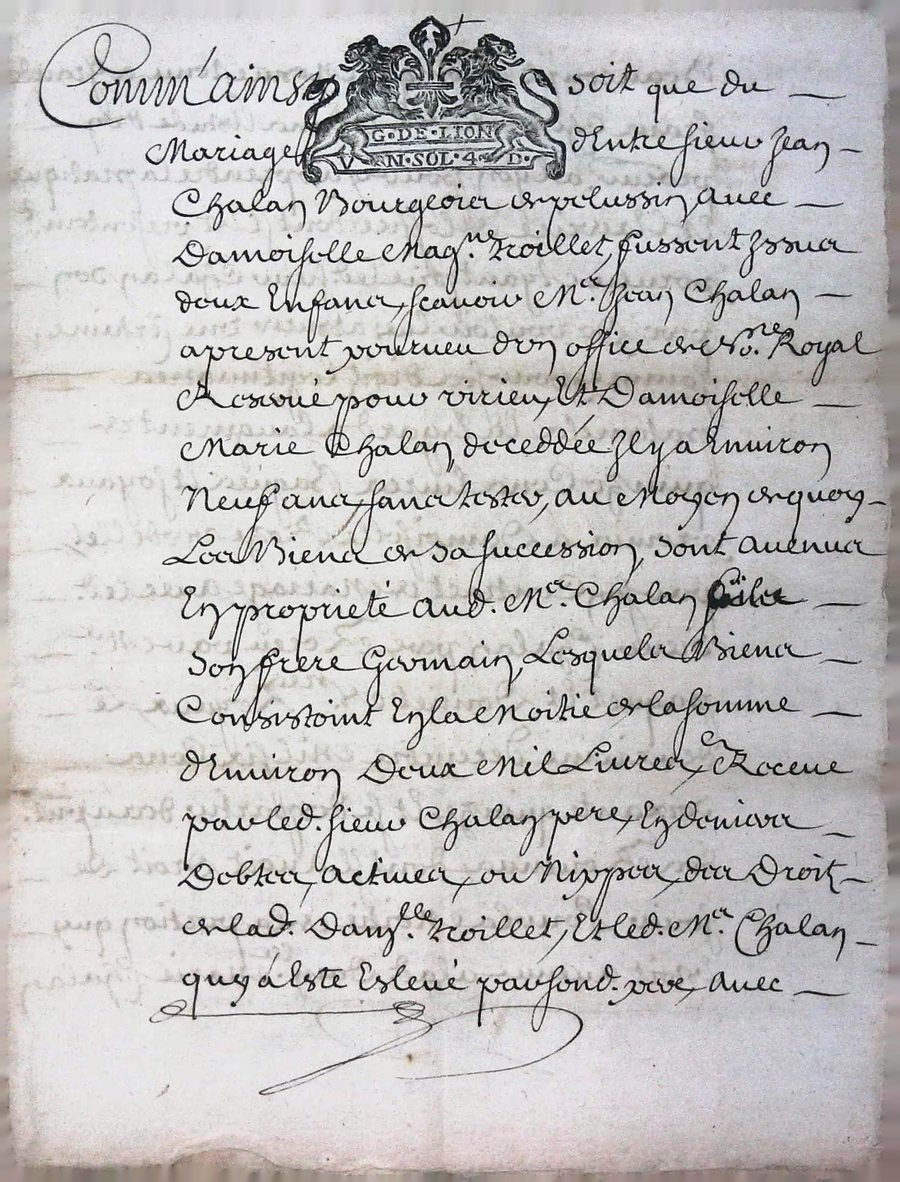 Comm'ainsy soit que du
G·DE·LION
VN·SOL·4·D·
Mariage d'Entre sieur Jean
Chalan Bourgeois de pelussin, avec
Damoiselle Mag.ne Troillet, fussent Issus
deux Enfans, scavoir Me.r Jean Chalan
apresent pourueu d'un office de No.re Royal
Reservé pour virieu, Et Damoiselle
Marie Chalan deceddée Il y a Environ
Neuf ans, sans tester, au Moyen de quoy
Les Biens de sa succession, sont avenus
En proprieté aud. Me.r Chalan
son frere Germain, Lesquels Biens
Consistoint En la Moitié de la somme
d'Environ Deux Mil Livres, Receue
par led. sieur Chalan pere, En deniers
Debtes, actives, ou Nippes, des Droit
de lad. Dam.lle Troillet, Et led. Me.r Chalan
quy a Esté Eslevé par sond. pere, avec